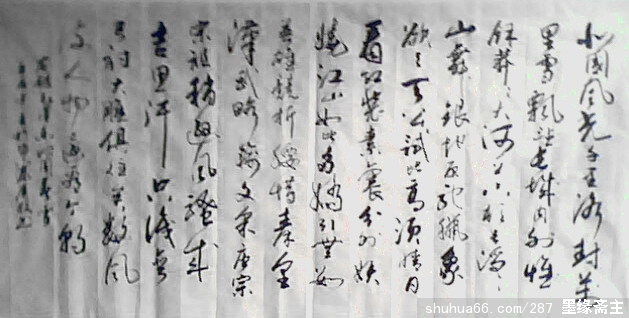 北国风光千里冰封万
里雪飘望长城内外惟
馀莽莽大河上下顿失滔滔
山舞银蛇原驰腊象
欲与天公试比高须晴日
看红装素裹分外妖
娆江山如此多娇引无数
英雄竞折腰惜秦皇
汉武略输文采唐宗
宋祖稍逊风骚成
吉思汗只識弯
弓射大雕俱往矣数风
流人物还看今朝
shuhua66.com/287 墨缘斋主